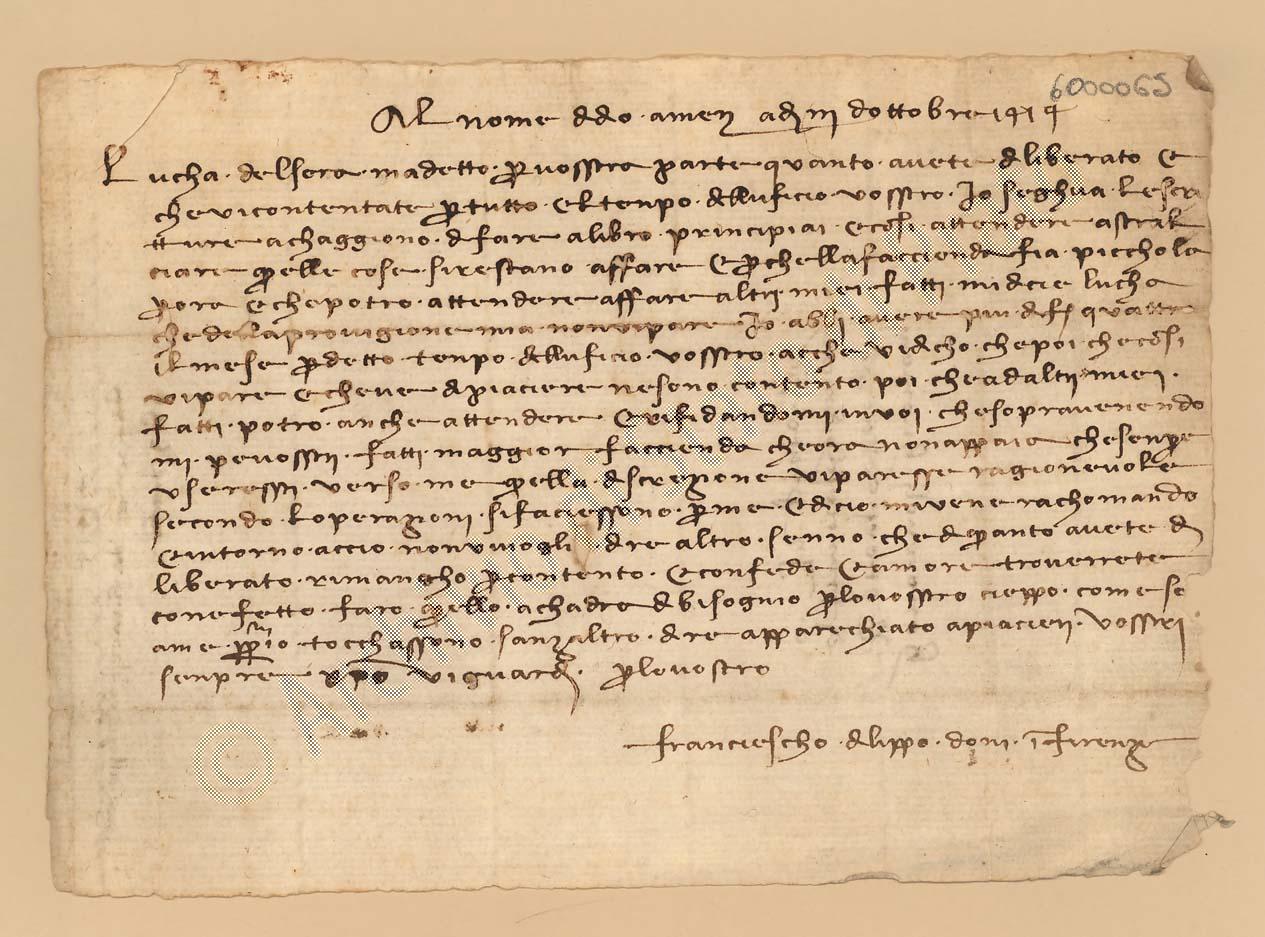 6000065
Al nome ddo amen adj iij dottobre 1414
Lucha delsera madetto p vosstra parte quanto avete dliberato e
che vi contentate p tutto el tenpo delluficio vosstro Io seghua le scri
tture a chaggiono d fare a libro principiai e cosi attendere astral
ciare quelle cose si restano affare e pche lla faccienda fia picchola
p ora e che potro attendere affare altri miei fatti midcie lucha
che della provigione mia non vi pare Io abbi avere piu d f quattro
il mese p detto tenpo delluficio vosstro acche vi dicho che poi che cosi
vi pare e che ve d piaciere ne sono contento poi che ad altri miei
fatti potro anche attendere e rifidandomi in voi che sopravenendo
mi pe vosstri fatti maggior faccienda che ora non appaia che senpre
useressti verso me quella discrezione vi paresse ragionevole
secondo loperazioni si faciessono p me e dicio mi vene rachomando
e intorno accio non vi vogli dire altro senno che d quanto avete di
liberato rimangho p contento e con fede e amore troverrete
con efetto faro quello achadra d bisognio p lo vosstro cieppo come se
a me propio tocchassono sanzaltro dire apparechiato a piacieri vosstri
senpre xpo vi guardi p lo vostro
franciescho dlippo doni i firenze
© Ar